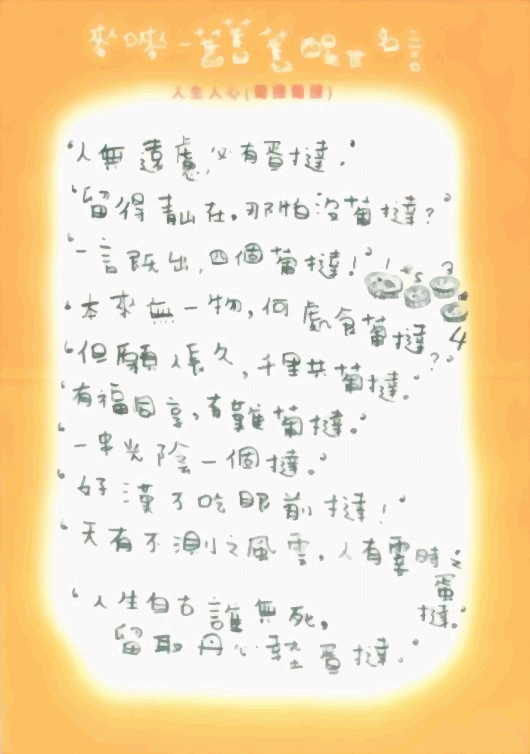 人生人心(葡撻葡撻)
‘人無遠慮,必有蛋撻.’
‘留得青山在,那怕沒葡撻?’
‘一言既出,四個葡撻!’
1 2 3
4
‘本來無一物,何處食葡撻?’
‘但願人長久,千里共葡撻。’
‘有福同享,有難葡撻。’
‘一串光陰一個撻。’
‘好漢不吃眼前撻!’
‘天有不測之風雲,人有霎時之
蛋
撻.’
‘人生自古誰無死,
留取丹心熱蛋撻.’